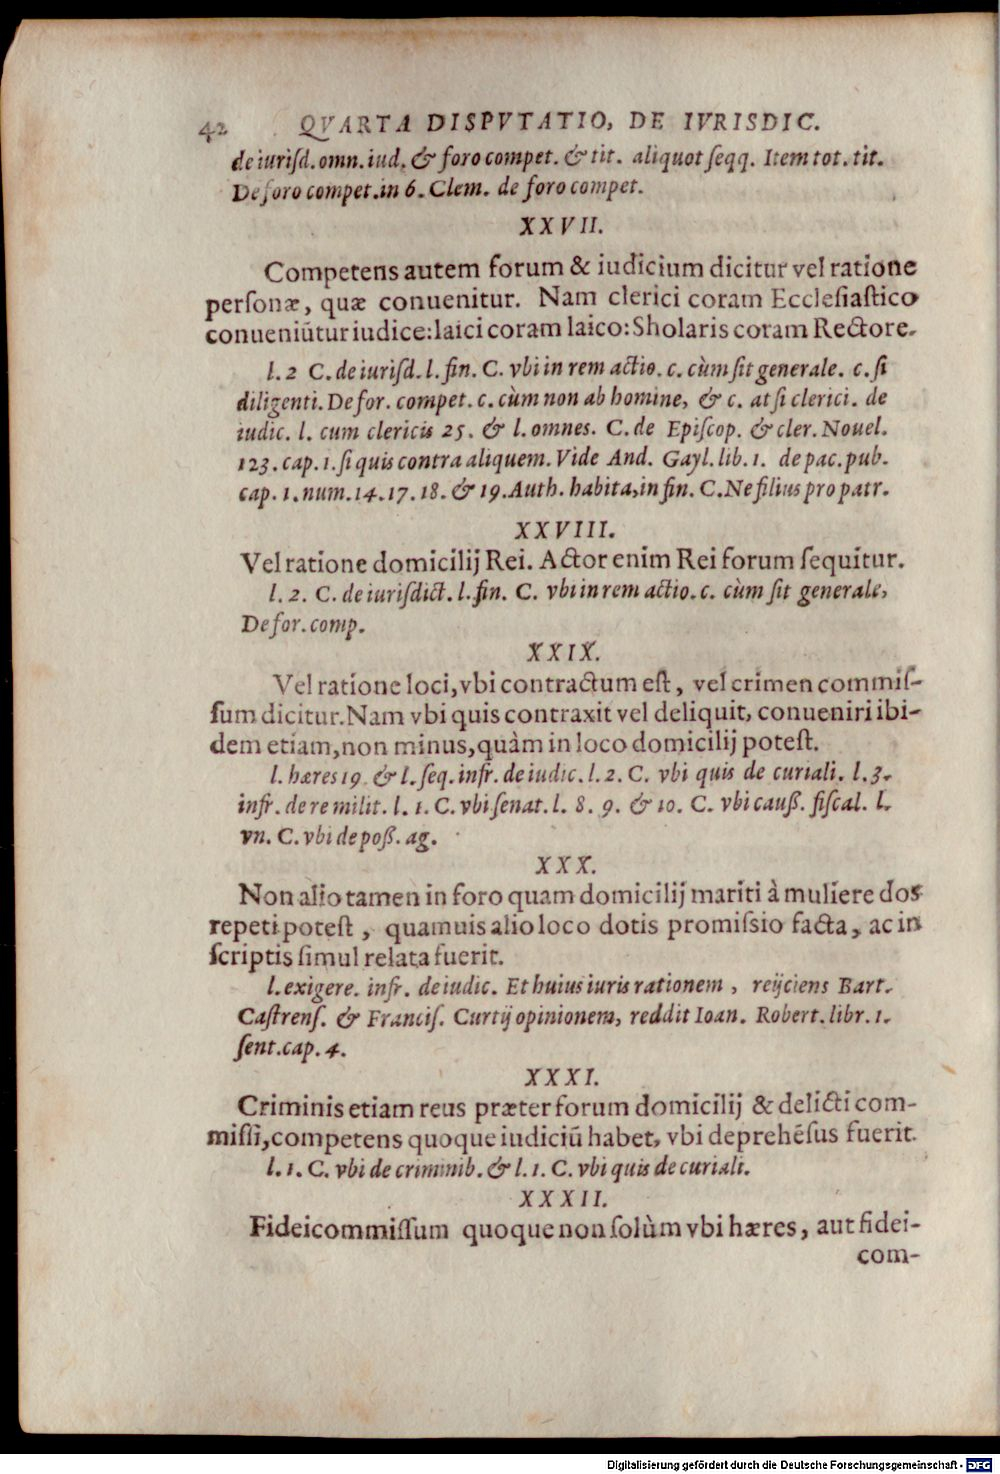 42 QVARTA DISPVTATIO, DE IVRISDIC.
de iurisd. omn. iud. & foro compet. & tit. aliquot seqq. Item tot. tit.
De foro compet. in 6. Clem. de foro compet.
XXVII.
Competens autem forum & iudicium dicitur vel ratione
personæ, quæ conuenitur. Nam clerici coram Ecclesiastico
conueniũtur iudice: laici coram laico: Sholaris coram Rectore.
l. 2 C. de iurisd. l. fin. C. vbi in rem actio. c. cùm sit generale. c. si
diligenti. De for. compet. c. cùm non ab homine, & c. at si clerici. de
iudic. l. cum clericis 25. & l. omnes. C. de Episcop. & cler. Nouel.
123. cap. 1. si quis contra aliquem. Vide And. Gayl. lib. 1. de pac. pub.
cap. 1. num. 14. 17. 18. & 19. Auth. habita, in fin. C. Ne filius pro patr.
XXVIII.
Vel ratione domicilij Rei. Actor enim Rei forum sequitur.
l. 2. C. de iurisdict. l. fin. C. vbi in rem actio. c. cùm sit generale,
De for. comp.
XXIX.
Vel ratione loci, vbi contractum est, vel crimen commis-
sum dicitur. Nam vbi quis contraxit vel deliquit, conueniri ibi-
dem etiam, non minus, quàm in loco domicilij potest.
l. hæres 19. & l. seq. infr. de iudic. l. 2. C. vbi quis de curiali. l. 3.
infr. de re milit. l. 1. C. vbi senat. l. 8. 9. & 10. C. vbi cauß. fiscal. l.
vn. C. vbi de poß. ag.
XXX.
Non alio tamen in foro quam domicilij mariti à muliere dos
repeti potest, quamuis alio loco dotis promissio facta, ac in
scriptis simul relata fuerit.
l. exigere. infr. de iudic. Et huius iuris rationem, reijciens Bart.
Castrens. & Francis. Curtij opinionem, reddit Ioan. Robert. libr. 1.
sent. cap. 4.
XXXI.
Criminis etiam reus præter forum domicilij & delicti com-
missi, competens quoque iudiciũ habet, vbi deprehẽsus fuerit.
l. 1. C. vbi de criminib. & l. 1. C. vbi quis de curiali.
XXXII.
Fideicommissum quoque non solùm vbi hæres, aut fidei-
com-
Digitalisierung gefördert durch die Deutsche Forschungsgemeinschaft - DFG